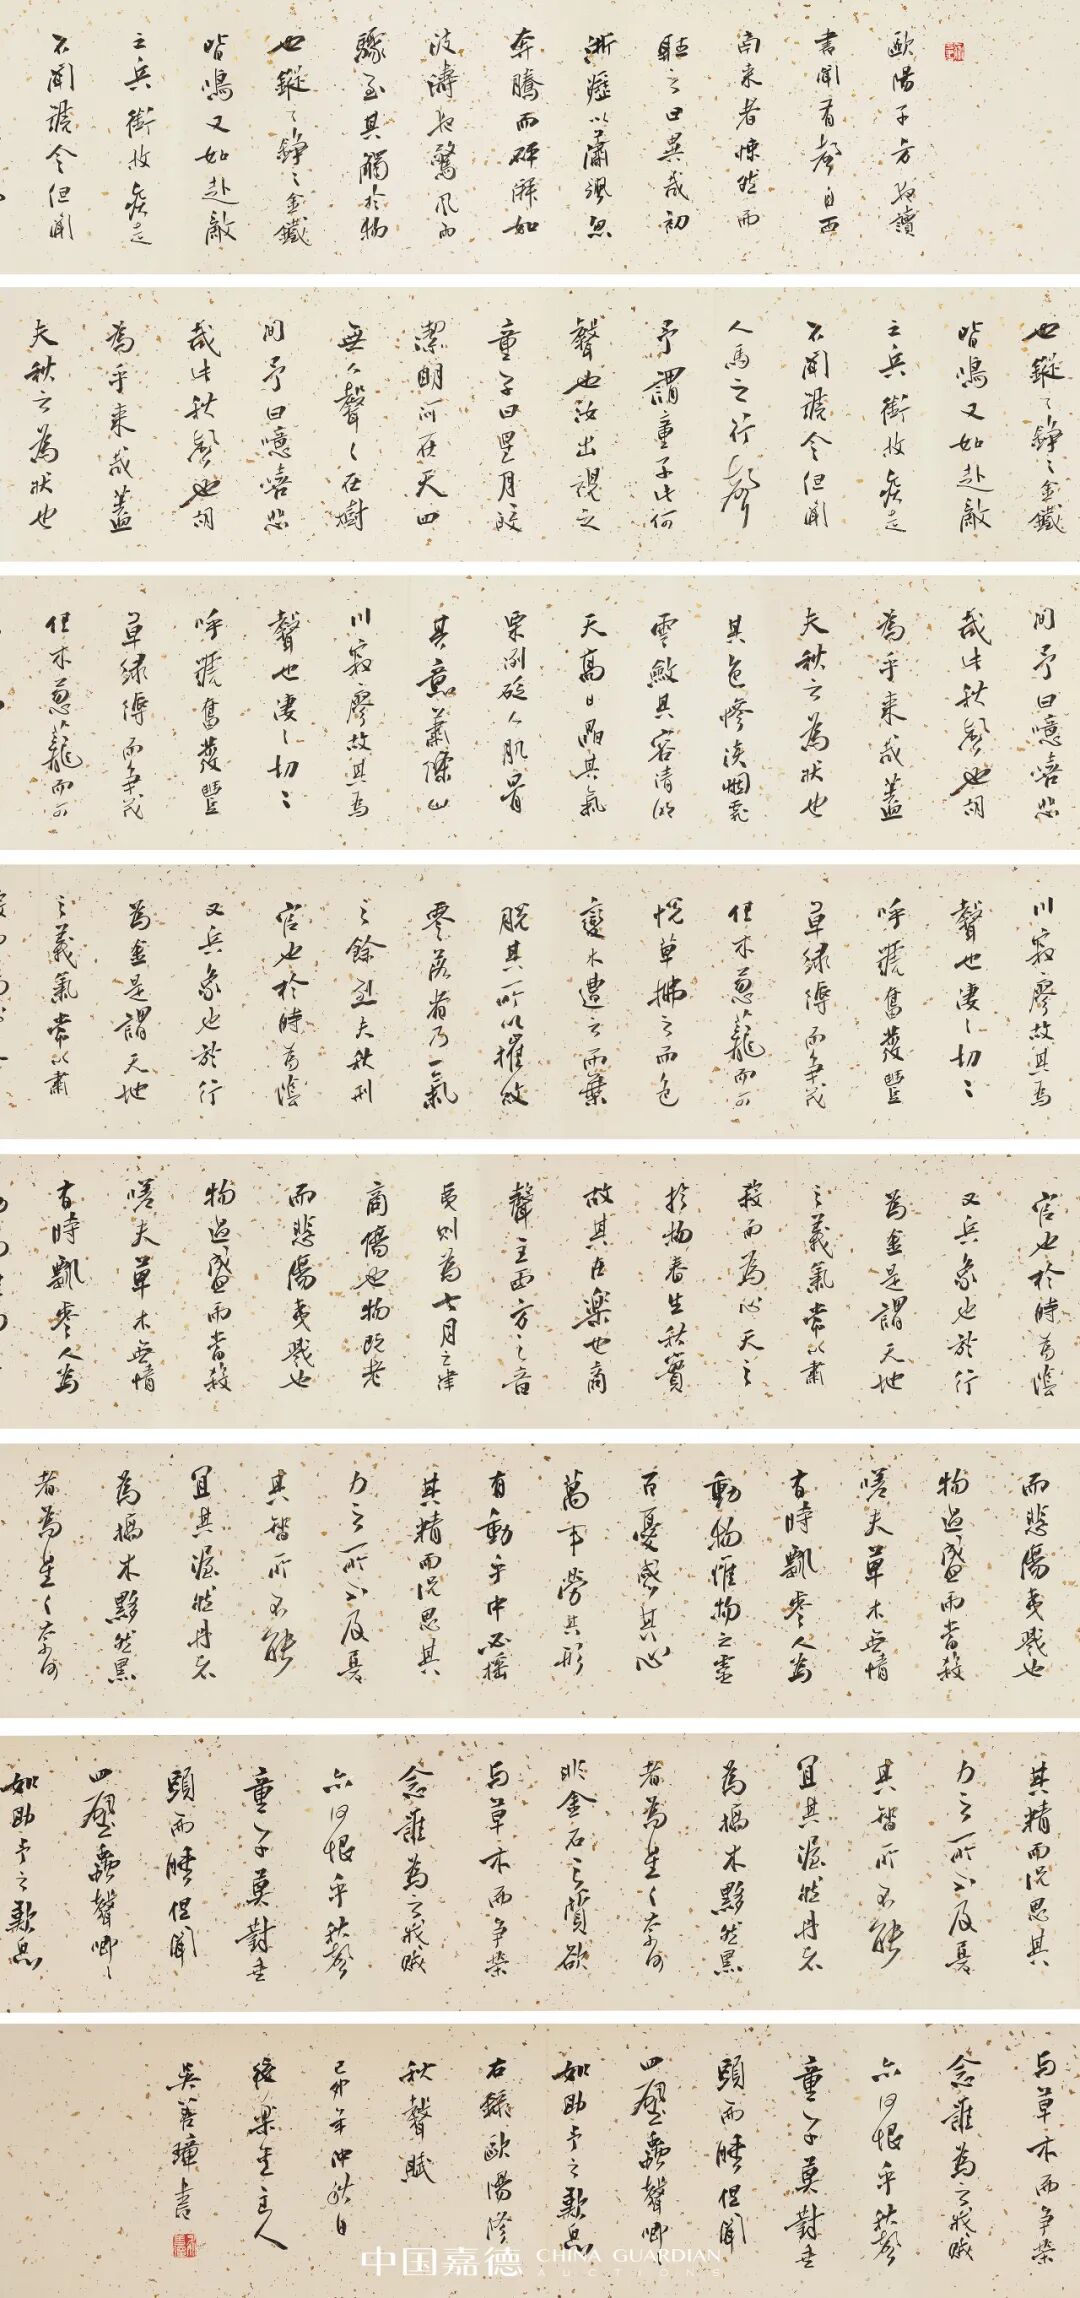 歐陽子方夜讀
書聞有聲自西
南來者悚然而
聽之曰異哉初
淅瀝以蕭颯忽
奔騰而砰湃如
波濤夜驚風雨
驟至其觸於物
也鏦〻錚〻金鐵
皆鳴又如赴敵
之兵銜枚疾走
不聞號令但聞
也鏦〻錚〻金鐵
皆鳴又如赴敵
之兵銜枚疾走
不聞號令但聞
人馬之行聲
予謂童子此何
聲也汝出視之
童子曰星月皎
潔明河在天四
無人聲〻在樹
間予曰噫嘻悲
哉此秋聲也胡
為乎來哉蓋
夫秋之為狀也
間予曰噫嘻悲
哉此秋聲也胡
為乎來哉蓋
夫秋之為狀也
其色慘淡烟霏
雲斂其容清明
天高日晶其氣
栗冽砭人肌骨
其意蕭條山
川寂寥故其為
聲也淒〻切〻
呼號奮發豐
草緑縟而争茂
佳木葱蘢而可
川寂寥故其為
聲也淒〻切〻
呼號奮發豐
草緑縟而争茂
佳木葱蘢而可
悅草拂之而色
變木遭之而葉
脫其所以摧敗
零落者乃一氣
之餘烈夫秋刑
官也於時為陰
又兵象也於行
為金是謂天地
之義氣常以肅
官也於時為陰
又兵象也於行
為金是謂天地
之義氣常以肅
殺而為心天之
於物春生秋實
故其在樂也商
聲主西方之音
夷則為七月之律
商傷也物既老
而悲傷夷戮也
物過盛而當殺
嗟夫草木無情
有時飄零人為
而悲傷夷戮也
物過盛而當殺
嗟夫草木無情
有時飄零人為
動物惟物之靈
百憂感其心
萬事勞其形
有動乎中必搖
其精而況思其
力之所不及憂
其智所不能
宜其渥然丹者
為槁木黟然黑
者為星〻奈何
其精而況思其
力之所不及憂
其智所不能
宜其渥然丹者
為槁木黟然黑
者為星〻奈何
非金石之質欲
與草木而争榮
念誰為之戕賊
亦何恨乎秋聲
童子莫對垂
頭而睡但聞
四壁蟲聲唧〻
如助予之歎息
與草木而争榮
念誰為之戕賊
亦何恨乎秋聲
童子莫對垂
頭而睡但聞
四壁蟲聲唧〻
如助予之歎息
右録歐陽修
秋聲賦
己卯年仲秋日
後樂堂主人
吳善璋書
中国嘉德 CHINA GUARDIAN
AUCTIONS